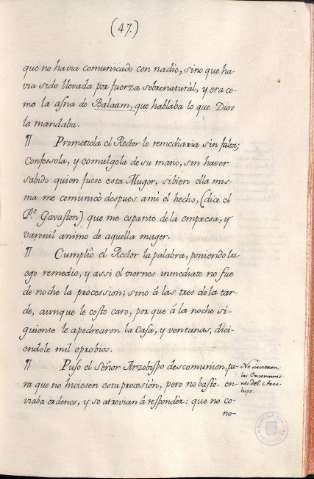 (47.)
que no havia comunicado con nadie, sino que ha-
via sido llevada por fuerza sobrenatural, y era co-
mo la asna de Balaam, que hablaba lo que Dios
la mandaba.
¶ Prometiola el Retor lo remediaria sin falta;
Confesola, y comulgola de su mano, sin haver
sabido quien fuese esta Muger, si bien ella mis-
ma me comunicò despues a mi el hecho, (dice el
Pe. Gavaston) que me espante de la empresa, y
varonil animo de aquella muger.
¶ Cumplio el Retor la palabra, poniendo lu-
ego remedio, y assi el viernes inmediato no fue
de noche la procession, sino à las tres de la tar-
de, aunque le costo caro, por que à la noche si-
guiente le apedrearon la Casa, y ventanas, dici-
endole mil oprobios.
¶ Puso el Señor Arzobispo descomunion, pa-
ra que no hiciesen esta procesion, pero no bastò: en-
viaba ordenes, y se atrevian à responder: que no co-
no-
las Excomunio-
nes del Arzo-
bispo.